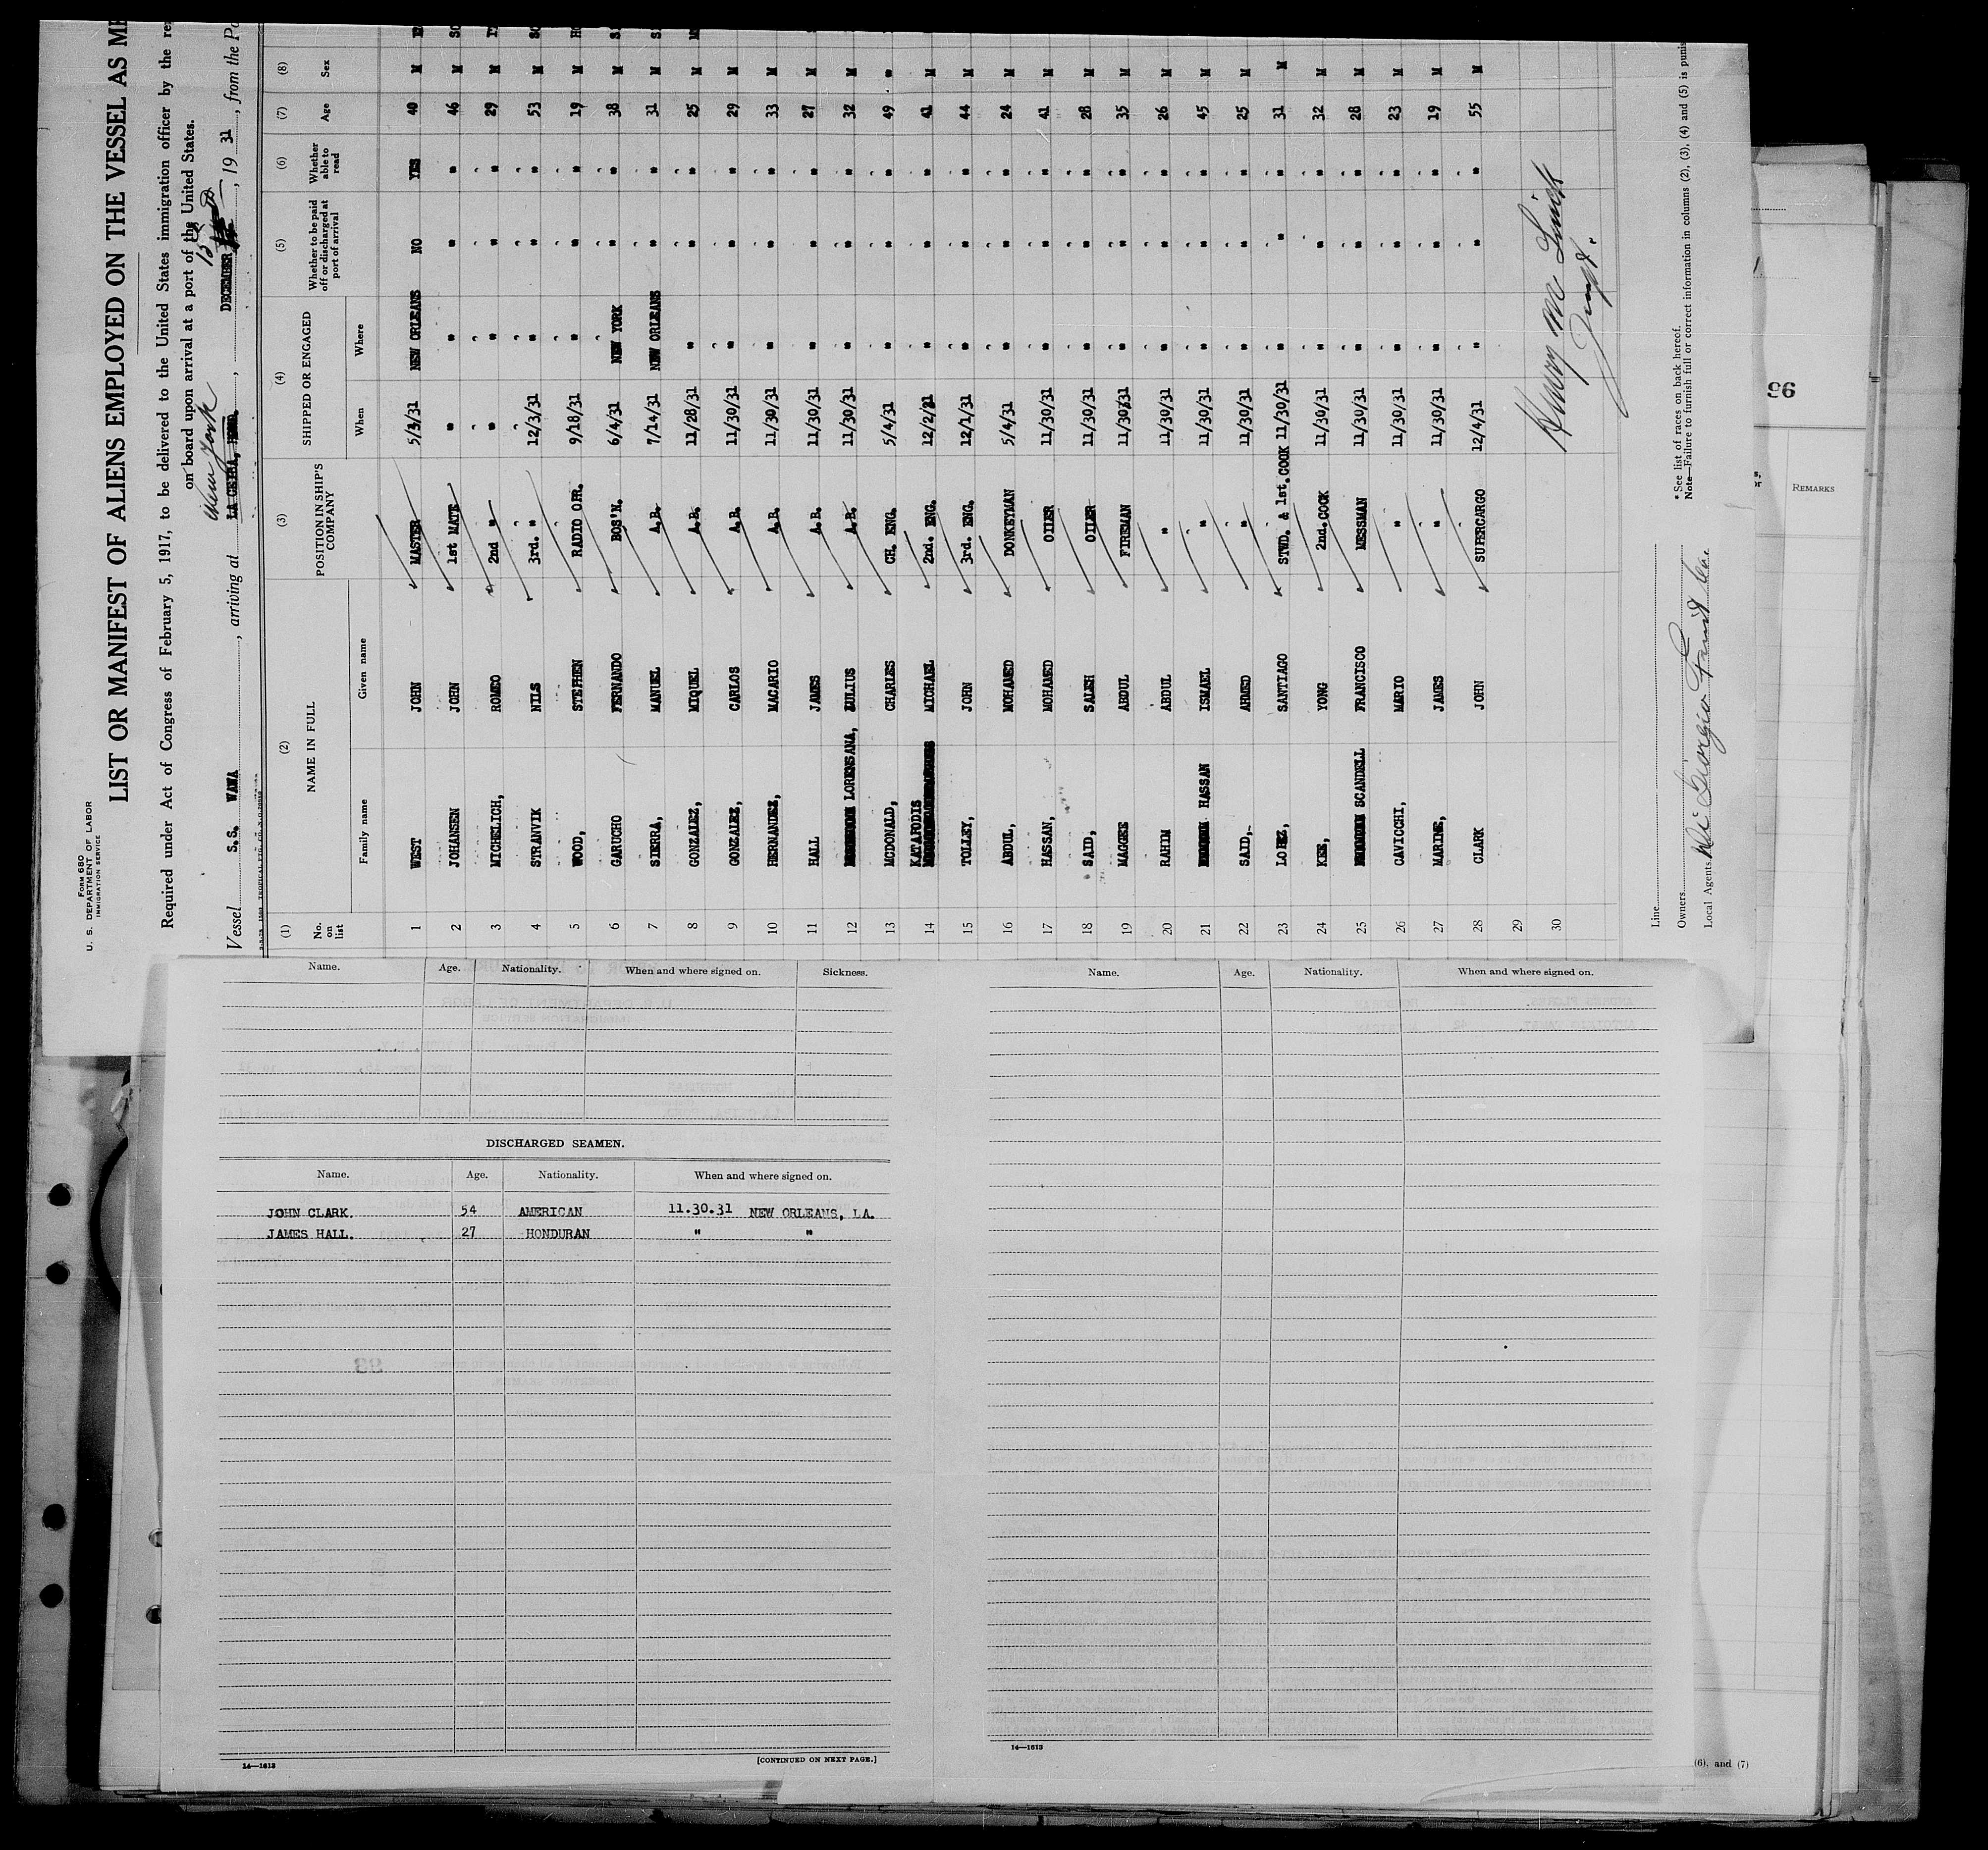 Form 680
U. S. DEPARTMENT OF LABOR
IMMIGRATION SERVICE
LIST OR MANIFEST OF ALIENS EMPLOYED ON THE VESSEL AS ME
Required under Act of Congress of February 5, 1917, to be delivered to the United States immigration officer by the re
on board upon arrival at a port of the United States.
Vessel S.S. WAWA, arriving at New York LA CEIBA, HOND., DECEMBER 15, 1931, from the Po
(1) (2) (3) (4) (5) (6) (7) (8)
No. on list NAME IN FULL POSITION IN SHIP'S COMPANY SHIPPED OR ENGAGED Whether to be paid off or discharged at port of arrival Whether able to read Age Sex
Family name Given name When Where
1 WEST JOHN MASTER 5/3/31 NEW ORLEANS NO YES 40 M
2 JOHANSEN JOHN 1st MATE " " " " 46 M
3 MICHELICH, ROMEO 2nd " " " " " 29 M
4 STRANVIK NILS 3rd. " 12/3/31 " " " 53 M
5 WOOD, STEPHEN RADIO OPR. 9/18/31 " " " 19 M
6 GARUCHO FERNANDO BOS'N. 6/4/31 NEW YORK " " 38 M
7 SIERRA, MANUEL A.B. 7/14/31 NEW ORLEANS " " 31 M
8 GONZALEZ, MIQUEL A.B. 11/28/31 " " " 25 M
9 GONZALEZ, CARLOS A.B. 11/30/31 " " " 29 M
10 HERNANDEZ, MACARIO A.B. 11/30/31 " " " 33 M
11 HALL JAMES A.B. 11/30/31 " " " 27 M
12 LORENSANA, EULIUS A.B. 11/30/31 " " " 32 M
13 MCDONALD, CHARLES CH. ENG. 5/4/31 " " " 49 "
14 KATAFODIS MICHAEL 2nd. ENG. 12/2/31 " " " 41 M
15 TOLLEY, JOHN 3rd. ENG. 12/1/31 " " " 44 M
16 ABDUL, MOHAMED DONKEYMAN 5/4/31 " " " 24 M
17 HASSAN, MOHAMED OILER 11/30/31 " " " 41 M
18 SAID, SALEH OILER 11/30/31 " " " 28 M
19 MAGGEE ABDUL FIREMAN 11/30/31 " " " 35 M
20 RAHIM ABDUL " 11/30/31 " " " 26 M
21 HASSAN ISMAEL " 11/30/31 " " " 45 M
22 SAID, AHMED " 11/30/31 " " " 25 M
23 LOPEZ, SANTIAGO STWD. & 1st. COOK 11/30/31 " " " 31 M
24 KEE, YONG 2nd. COOK 11/30/31 " " " 32 M
25 SCANDELL FRANCISCO MESSMAN 11/30/31 " " " 28 M
26 CAVICCHI, MARIO " 11/30/31 " " " 23 M
27 MARINE, JAMES " 11/30/31 " " " 19 M
28 CLARK JOHN SUPERCARGO 12/4/31 " " " 55 M
29
30
Line
Owners
Local Agents Di Giorgio Fruit Co.
*See list of races on back hereof.
Note—Failure to furnish full or correct information in columns (2), (3), (4) and (5) is punis
96
REMARKS
Name. Age. Nationality. When and where signed on. Sickness.
DISCHARGED SEAMEN.
Name. Age. Nationality. When and where signed on.
JOHN CLARK. 54 AMERICAN 11.30.31 NEW ORLEANS, LA.
JAMES HALL. 27 HONDURAN " "
14—1613
[CONTINUED ON NEXT PAGE.]
Name. Age. Nationality. When and where signed on.
14—1613
(6), and (7)